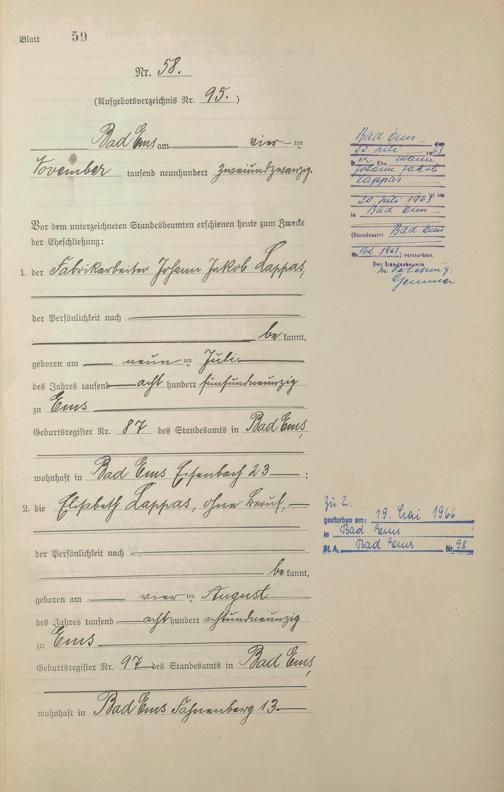 Blatt 59
Nr. 58.
(Aufgebotsverzeichnis Nr. 95.)
Bad Ems am vier ten
November tausend neunhundert zweiundzwanzig.
Vor dem unterzeichneten Standesbeamten erschienen heute zum Zwecke
der Eheschließung:
1. der Fabrikarbeiter Johann Jakob Lappas,
der Persönlichkeit nach
be kannt,
geboren am neun ten Juli
des Jahres tausend acht hundert fünfundneunzig
zu Ems
Geburtsregister Nr. 87 des Standesamts in Bad Ems,
wohnhaft in Bad Ems Eisenbach 23 ;
2. die Elisabeth Lappas, ohne Beruf,
der Persönlichkeit nach
be kannt,
geboren am vier ten August
des Jahres tausend acht hundert achtundneunzig
zu Ems
Geburtsregister Nr. 97 des Standesamts in Bad Ems,
wohnhaft in Bad Ems Fahnenberg 13
Bad Ems, den
22. Juli 1963
Ehemann
Johann Jakob
Lappas
ist am
20. Juli 1963
in Bad Ems
(Standesamt Bad Ems
Nr. 1963) verstorben.
Der Standesbeamte
In Vertretung:
Zu 2.
gestorben am: 19. Mai 1966
in Bad Ems
St. A. Bad Ems Nr. 98